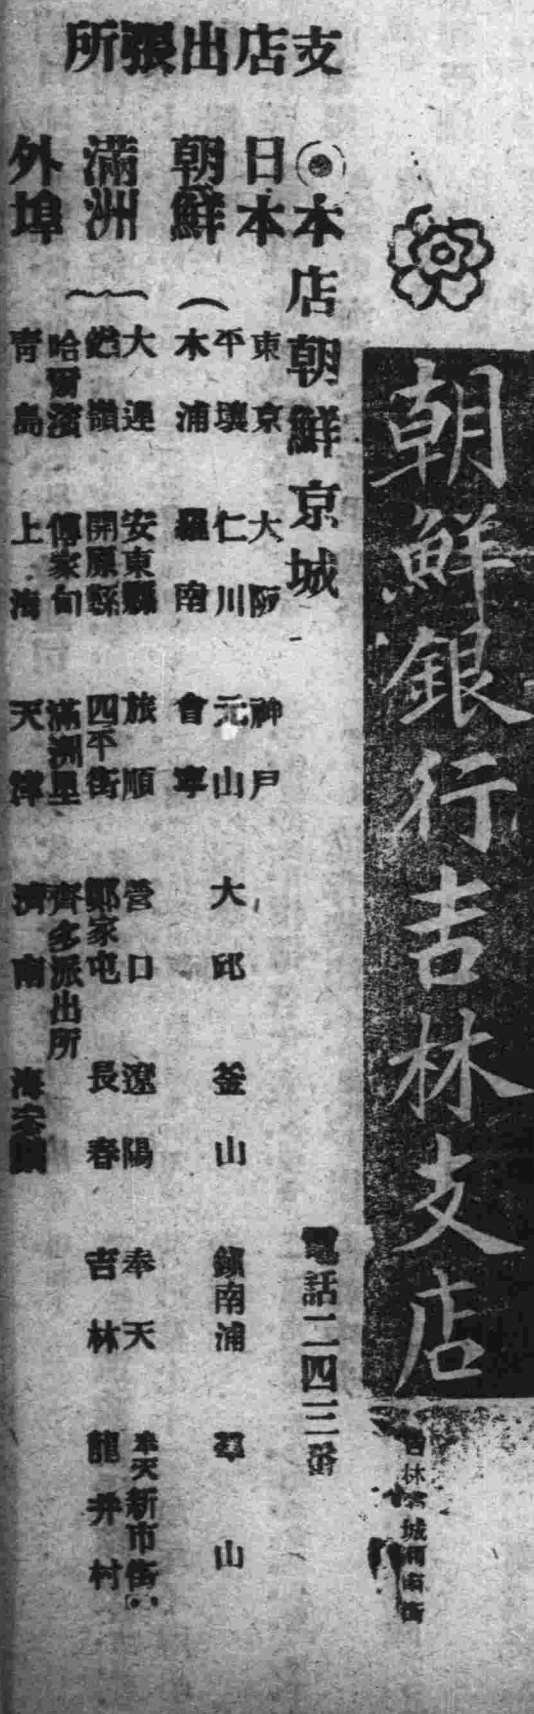 朝鮮銀行吉林支店
◉本店朝鮮京城
電話二四三番
支店出張所
日本
東京 大阪 神戶
朝鮮
平壤 仁川 元山 大邱 釜山 鎭南浦 羣山
木浦 羅南 會寧
滿洲
大連 安東縣 旅順 營口 遼陽 奉天 奉天新市街
鐵嶺 開原縣 四平街 鄭家屯 長春 吉林 龍井村
哈爾濱 傅家甸 滿洲里 齊多派出所
外埠
靑島 上海 天津 濟南